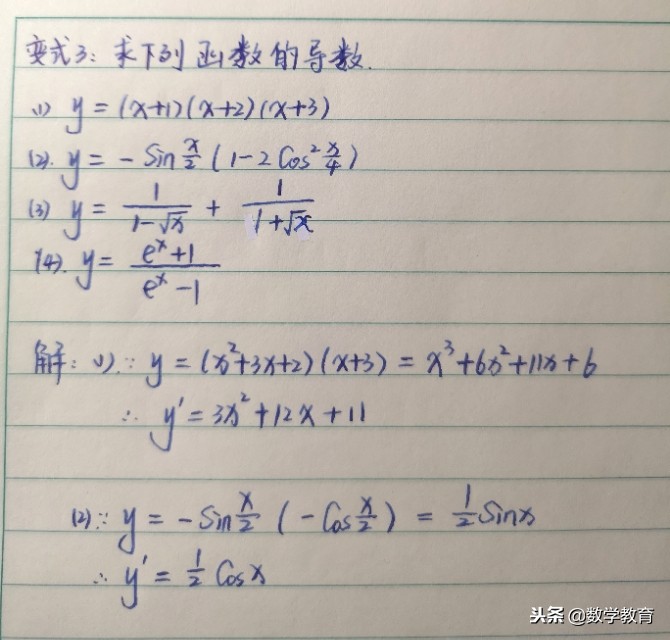 变式3：求下列函数的导数.
(1) y = (x+1)(x+2)(x+3)
(2). y = - Sin x/2 (1-2Cos² x/4)
(3) y = 1/(1-√x) + 1/(1+√x)
(4). y = (eˣ+1)/(eˣ-1)
解：(1)∵ y = (x²+3x+2)(x+3) = x³+6x²+11x+6
∴ y′=3x²+12x+11
(2)∵ y = -Sin x/2 (-Cos x/2) = 1/2 Sinx
∴ y′ = 1/2 Cosx
头条 @数学教育